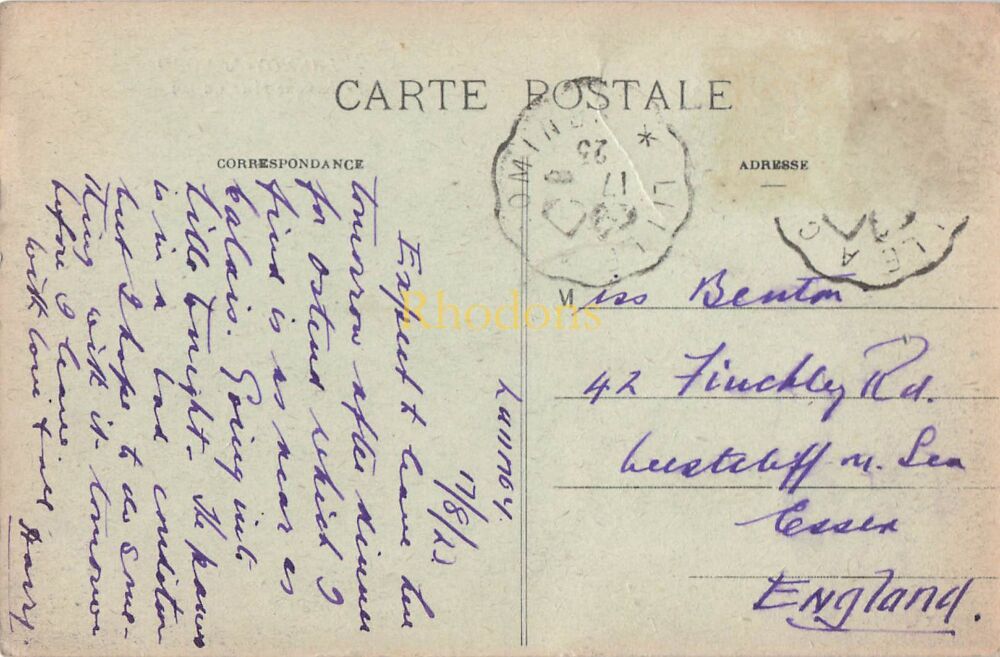 CARTE POSTALE
CORRESPONDANCE
ADRESSE
LANNOY.
17/8/23
Expect to leave here
tomorrow after dinner
for Ostend which I
find is as near as
Calais. Going into
Lille tonight. The piano
is in a bad condition
but I hope to do some-
thing with it tomorrow
before I leave.
With love from Harry.
Miss Benton
42 Finchley Rd.
Westcliff n. Sea
Essex
ENGland.
OMIN
* LILLE
17
23
LLE A C
Rhodons